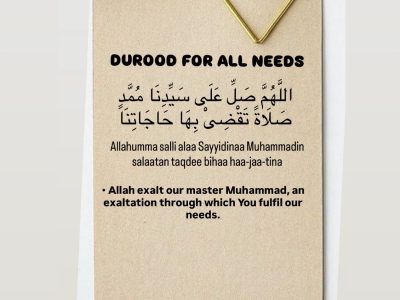 DUROOD FOR ALL NEEDS
اللَّهُمَّ صَلِّ عَلَى سَيِّدِنَا مُمَّدٍ
صَلَاةً تَقْضِىْ بِهَا حَاجَاتِنَا
Allahumma salli alaa Sayyidinaa Muhammadin
salaatan taqdee bihaa haa-jaa-tina
• Allah exalt our master Muhammad, an
exaltation through which You fulfil our
needs.